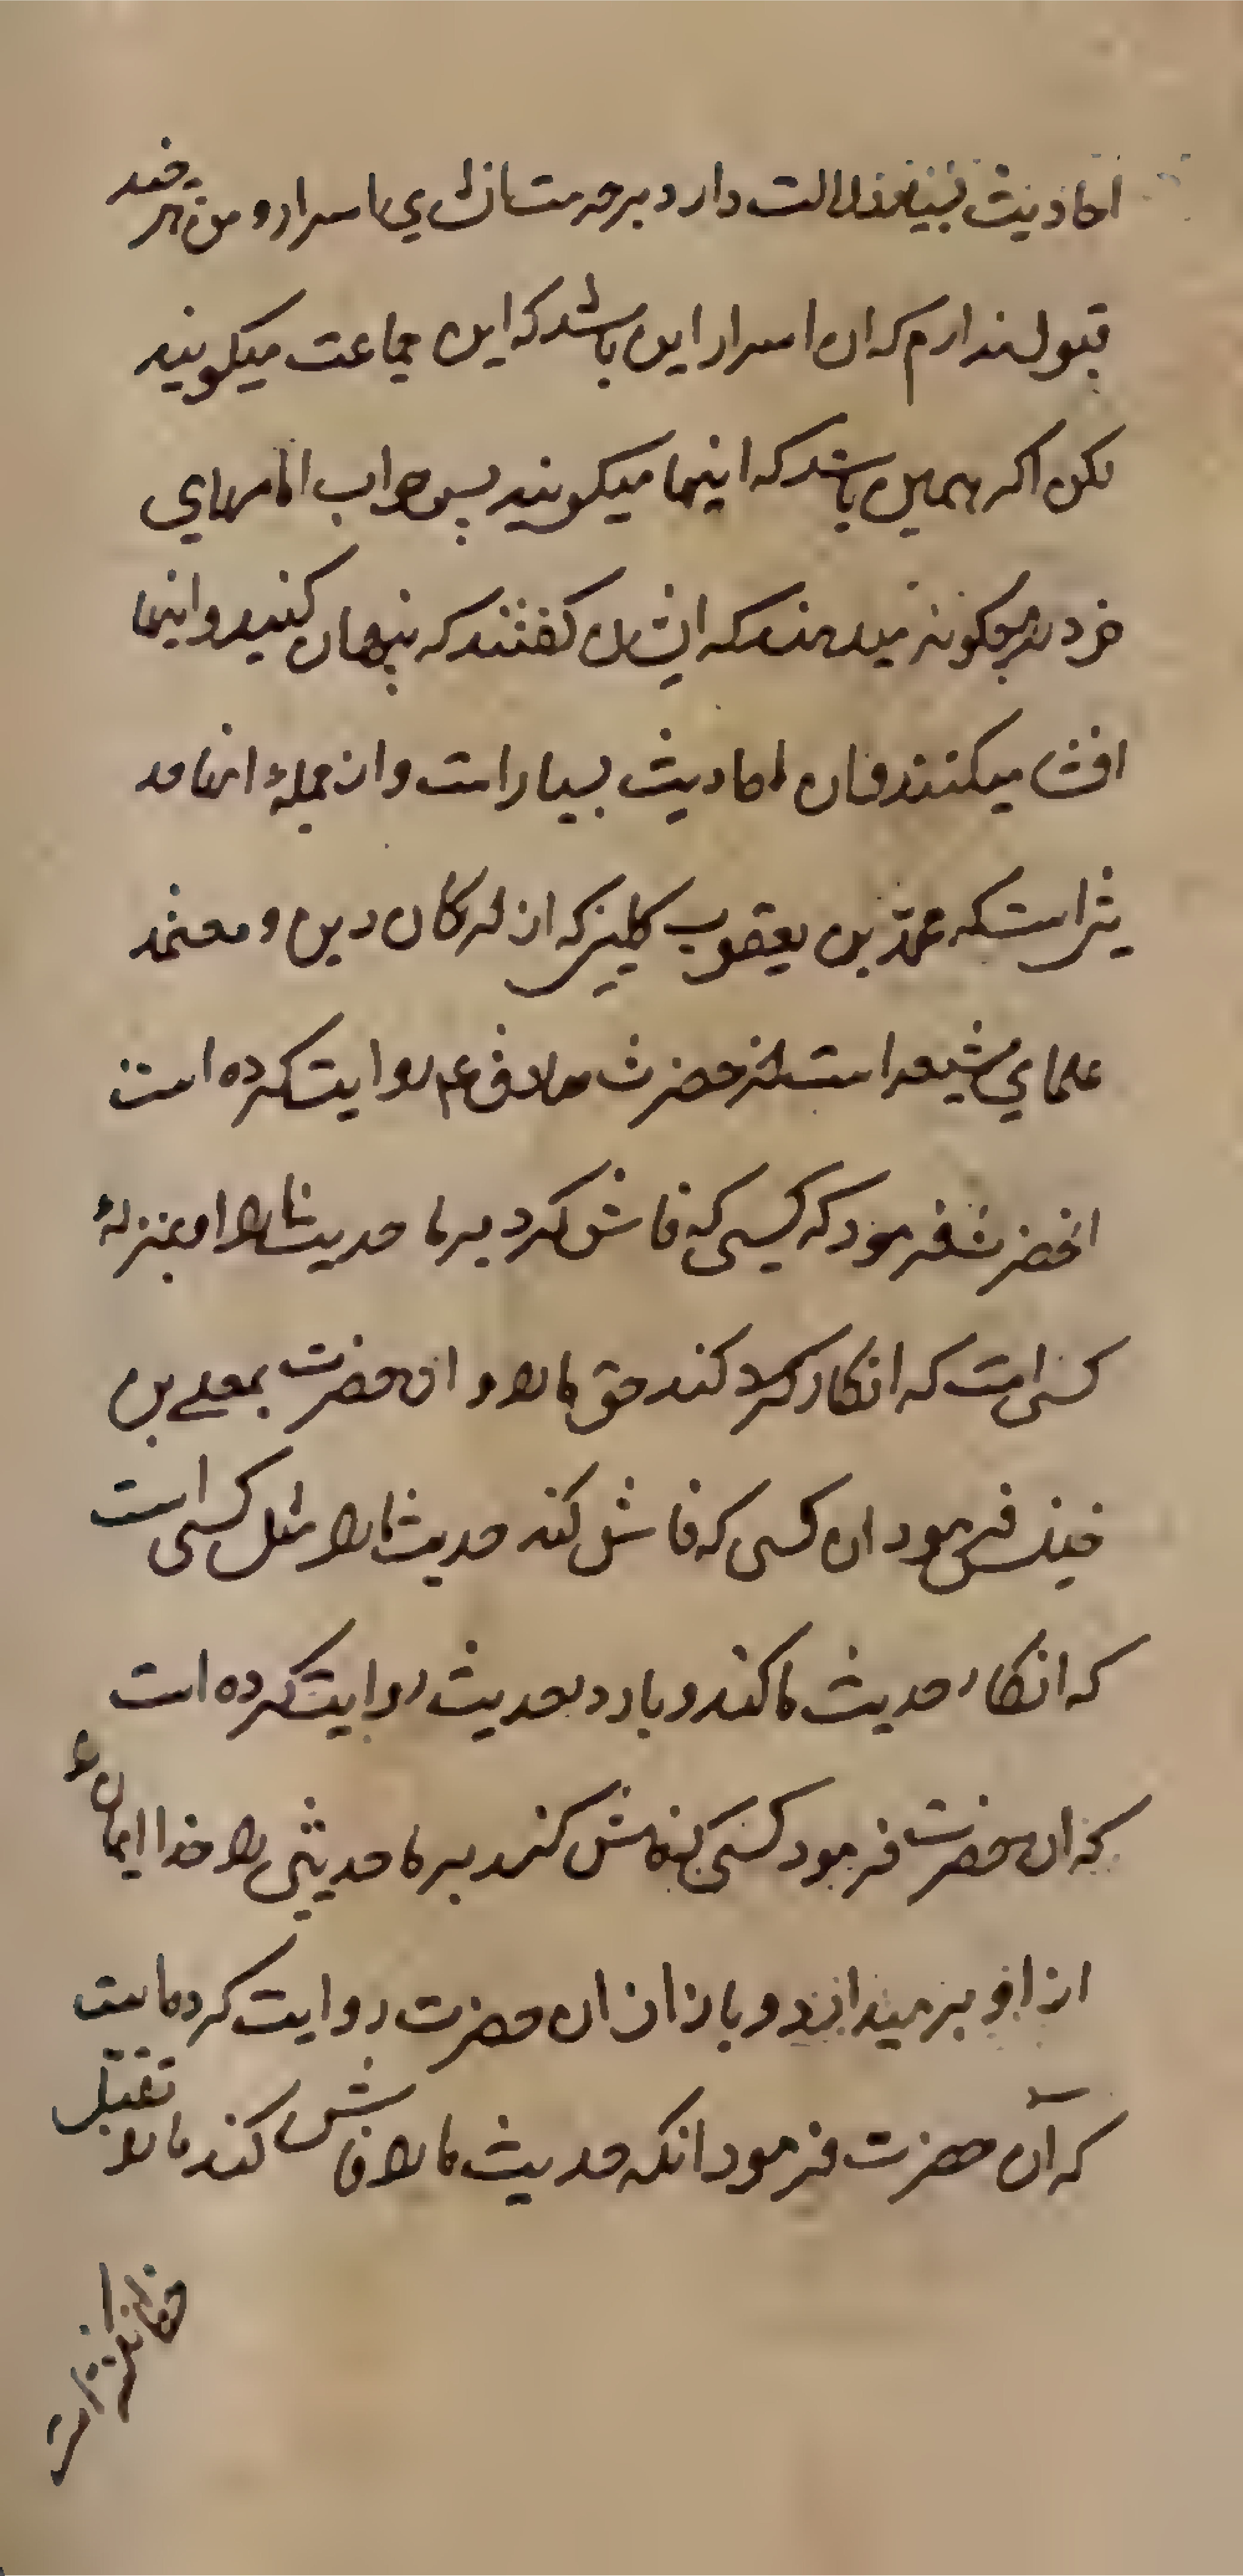 احادیث دلالت دارد برحرمت اسرار و من هر چند
قبول ندارم که ان اسرار این باشد که این جماعت میکویند
لکن اکر همین باشد که اینها میکویند پس جواب امامهای
خود را چکونه میدهند که ایشان کفتند که پنهان کنید و اینها
افشا میکنند و ان احادیث بسیار است و از جملهٔ انها حد
یثی است که محمّد بن یعقوب کلینی که از ارکان دین و معتمد
علمای شیعه است از حضرت صادق ع روایت کرده است
انحضرت فرمود که کیسی که فاش کرد بر ما حدیث ما را او بمنزلهٔ
کسی است که انکار کند حق ما را و ان حضرت بمعلی بن
خنیس فرمود ان کسی که فاش کند حدیث ما را مثل کسی است
که انکار حدیث ما کند و باز در حدیث روایت کرده است
که ان حضرت فرمود کسی که فاش کند بر ما حدیثی را خدا ایمان
از او بر میداند و باز از ان حضرت روایت کرده است
که آن حضرت فرمود انکه حدیث ما را فاش کند ما را بقتل